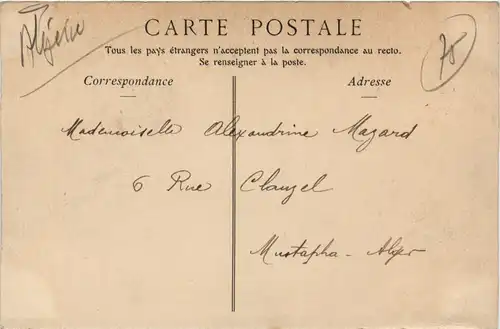 Algérie
CARTE POSTALE
70
Tous les pays étrangers n'acceptent pas la correspondance au recto.
Se renseigner à la poste.
Correspondance
Adresse
Mademoiselle Alexandrine Mazard
6 Rue Clauzel
Mustapha - Alger